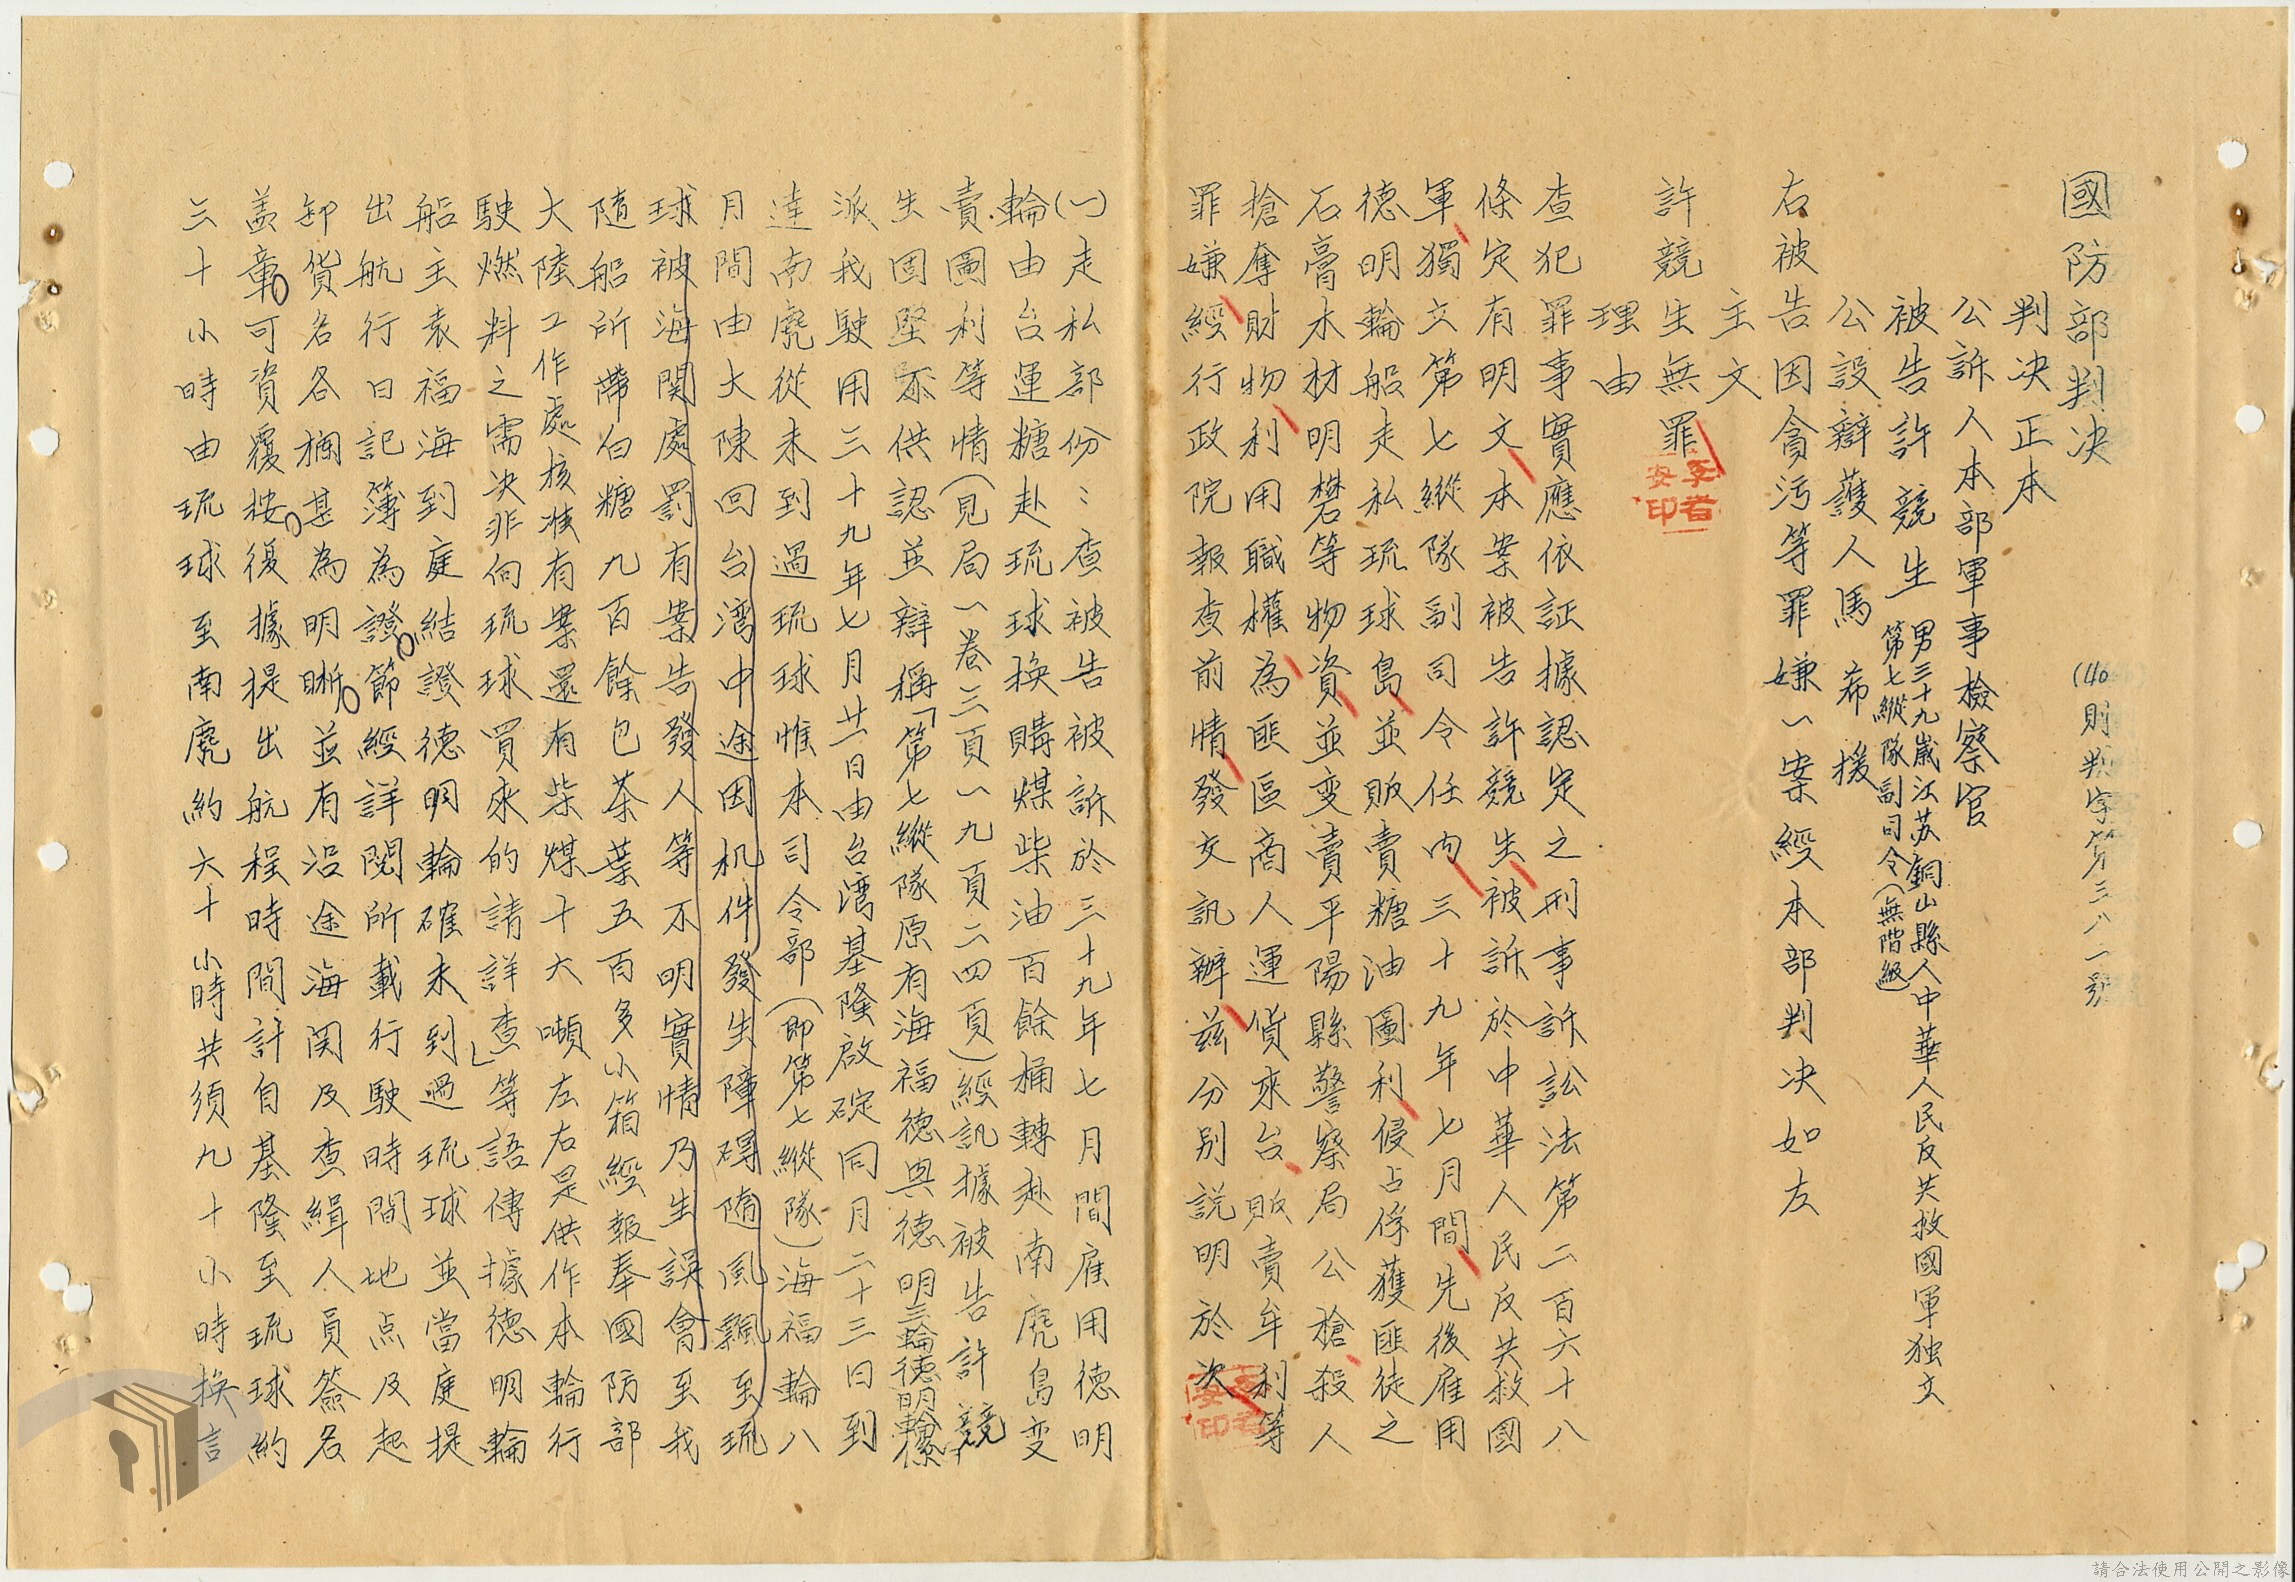 國防部判决
(40)則判字第三八一號
判决正本
公訴人本部軍事檢察官
被告許競生 男三十九歲江苏銅山縣人中華人民反共救國軍独立
第七縱隊副司令(無階級)
公設辯護人馬希援
右被告因貪污等罪嫌一案經本部判决如左
主文
許競生無罪
理由
查犯罪事實應依証據認定之刑事訴訟法第二百六十八
條定有明文本案被告許競生被訴於中華人民反共救國
軍獨立第七縱隊副司令任內三十九年七月間先後雇用
德明輪船走私琉球島並販賣糖油圖利侵占俘獲匪徒之
石膏木材明礬等物資並变賣平陽縣警察局公槍殺人
搶奪財物利用職權為匪區商人運貨來台販賣牟利等
罪嫌經行政院報查前情發交訊辦茲分別説明於次
李者安印
(一)走私部份：查被告被訴於三十九年七月間雇用德明
輪由台運糖赴琉球換購煤柴油百餘桶轉赴南麂島变
賣圖利等情(見局一卷三頁一九頁二四頁)經訊據被告許競
生固堅不供認並辯稱「第七縱隊原有海福德與德明三輪德明輪係
派我駛用三十九年七月廿一日由台灣基隆啟碇同月二十三日到
達南麂從未到過琉球惟本司令部(即第七縱隊)海福輪八
月間由大陳回台灣中途因机件發生障碍隨風飄至琉
球被海関處罰有案告發人等不明實情乃生誤會至我
隨船所帶白糖九百餘包茶葉五百多小箱經報奉國防部
大陸工作處核准有案還有柴煤十六噸左右是供作本輪行
駛燃料之需决非向琉球買來的請詳查」等語傳據德明輪
船主袁福海到庭結證德明輪確未到過琉球並當庭提
出航行日記簿為證節經詳閱所載行駛時間地点及起
卸貨名各欄甚為明晰並有沿途海関及查緝人員簽名
盖章可資覆按復據提出航程時間計自基隆至琉球約
三十小時由琉球至南麂約六十小時共須九十小時換言
請合法使用公開之影像